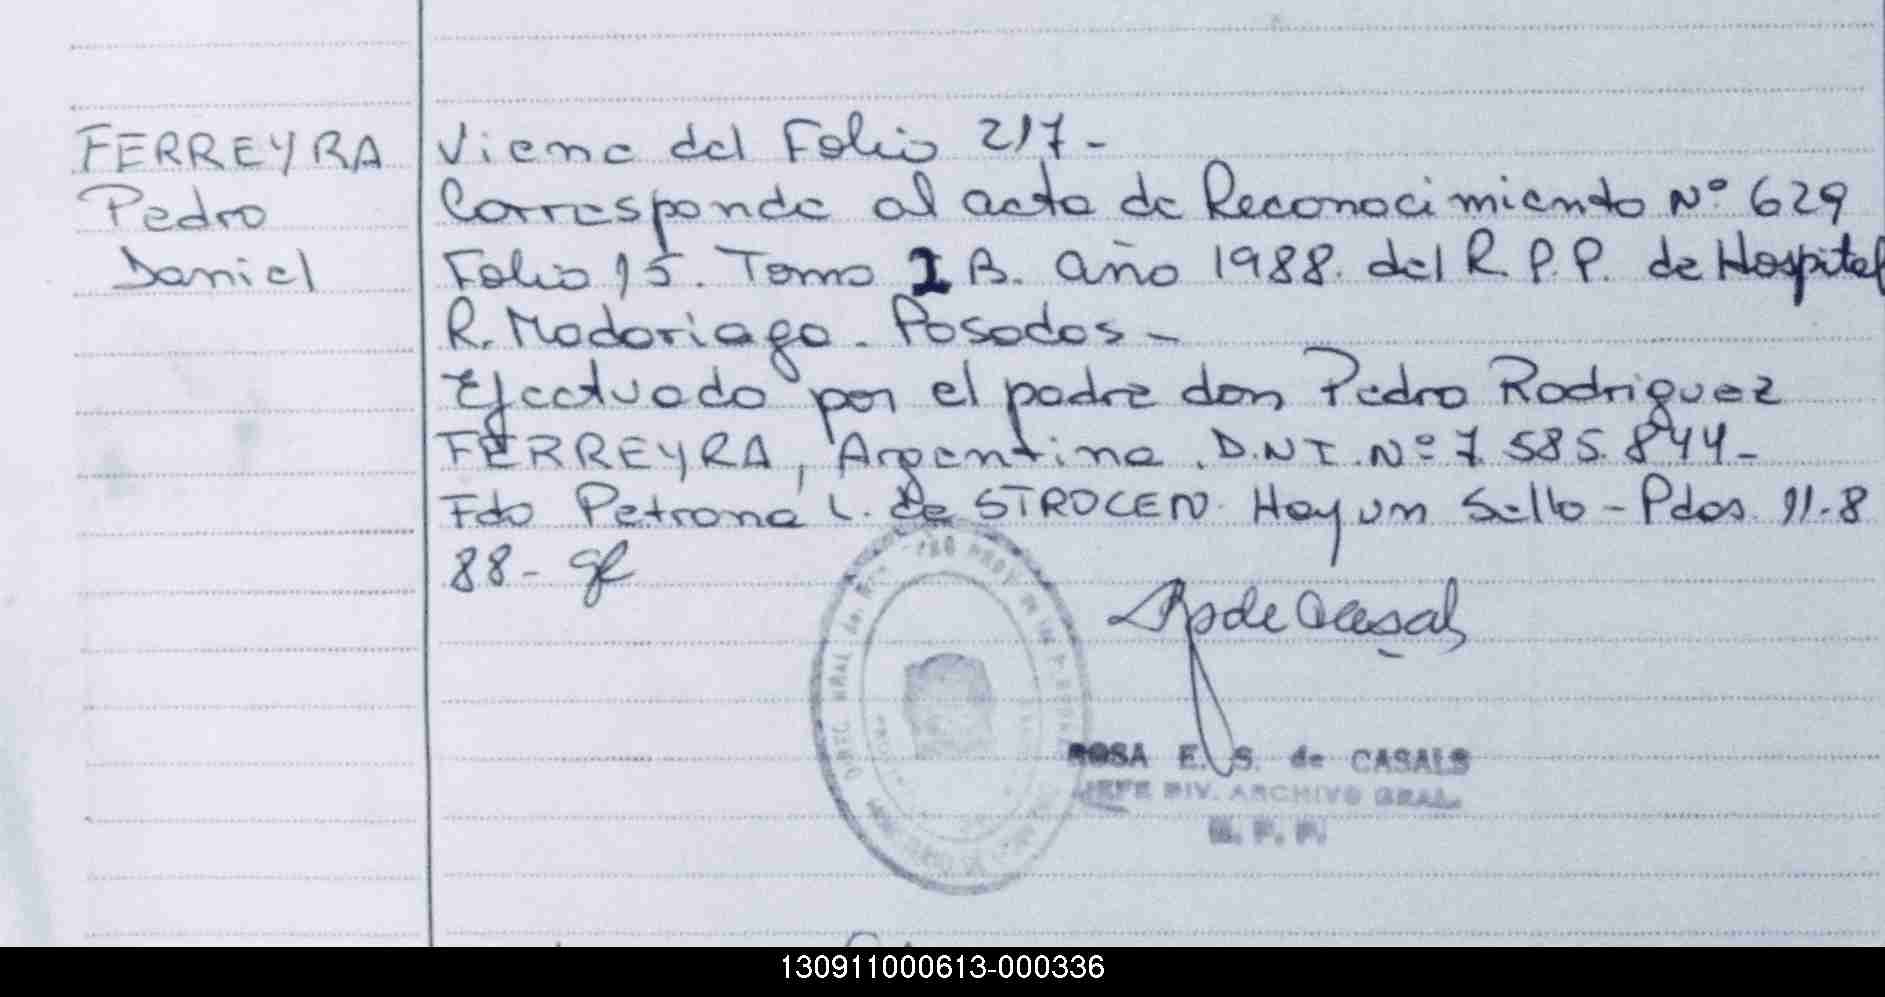 FERREYRA
Pedro
Daniel
Viene del Folio 217-
Corresponde al acta de Reconocimiento Nº 629
Folio 15. Tomo I B. año 1988. del R. P. P. de Hospital
R. Madariaga. Posadas-
Efectuado por el padre don Pedro Rodriguez
FERREYRA, Argentino. D.N.I. Nº 7.585.844-
Fdo Petrona L. de STROCEN. Hay un Sello - Pdas. 11-8
88-
ROSA E. S. de CASALS
JEFE DIV. ARCHIVO GRAL.
R. P. P.
130911000613-000336